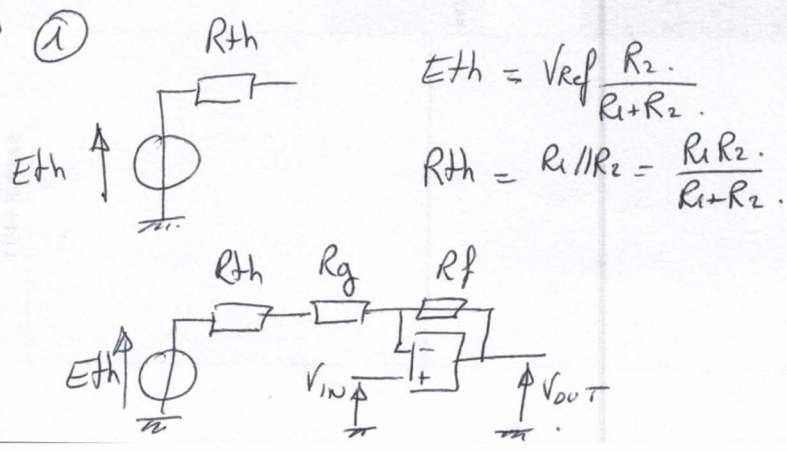 1
Rth
Eth
Eth = VRef R2.
R1+R2.
Rth = R1//R2 = R1 R2.
R1+R2.
Rth Rg Rf
Eth
-
+
VIN
VOUT